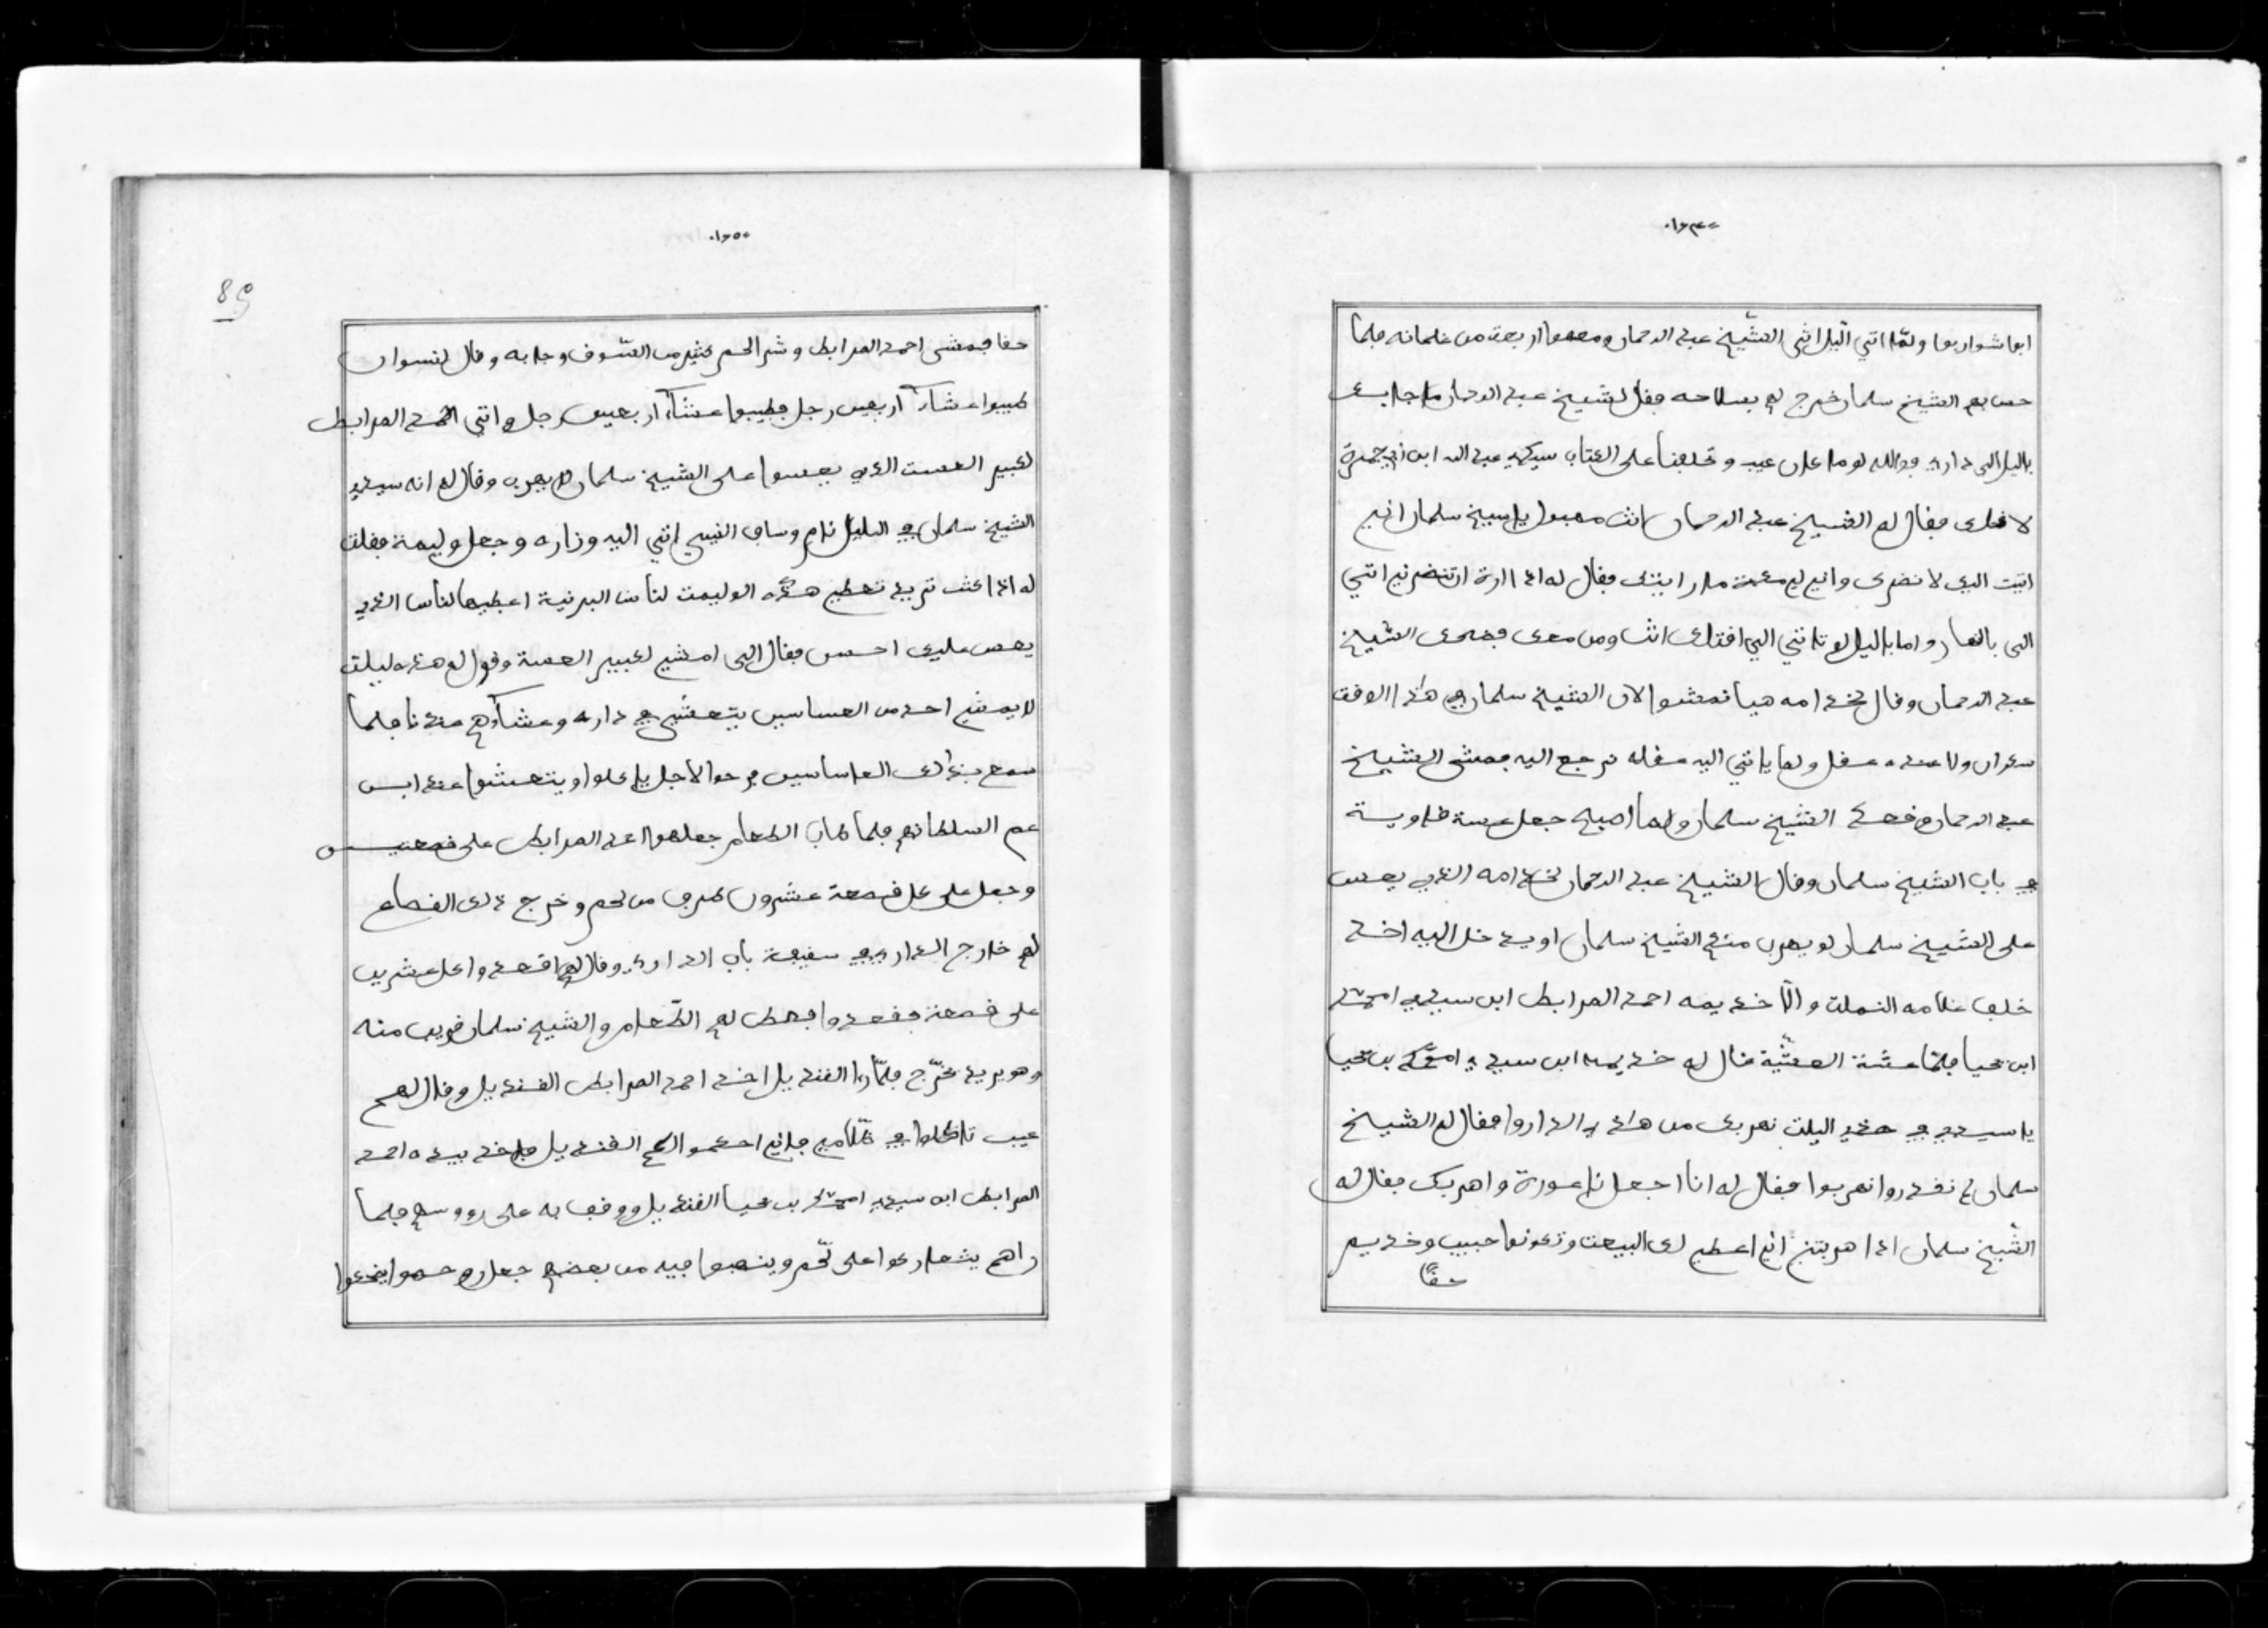 ١٦٤٠
ابوا شواربوا ولقا اتي اليل اتى الشيخ عبد الرحمان ومعهوا اربعت من غلمانه فلما
حس بهم الشيخ سلمان خرج لهم بسلاحه فقل لشيخ عبد الرحمان ما جابك
باليل الى داري فوالله لوما كان عيب وتحلفنا على الكتاب سيدي عبد الله ابن ابي جمرة
لا فقال له الشيخ عبد الرحمان انت مهبول يا سيخ سلمان اني
اتيت اليك لا نضرك واني لي معة ما رايتك فقال له اذا اردة ان تنضرني اتني
الى بالنهار واما باليل لو تاتني الي اقتلك انت ومن معك فضحك الشيخ
عبد الرحمان وقال لخدامه هيا نمشوا الان الشيخ سلمان في هذا الوقت
سكران ولا عنده عقل ولما ياتي اليه عقله نرجع اليه فمشى الشيخ
عبد الرحمان وقعد الشيخ سلمان ولما اصبح جعل عسة قاوية
في باب الشيخ سلمان وقال الشيخ عبد الرحمان لخدامه الذي يعس
على الشيخ سلمان لو يهرب منكم الشيخ سلمان او يدخل اليه احد
خلف غلامه النملت والا خديمه احمد المرابط ابن سيدي امحمد
ابن يحيا فلما عشة العشية قال له خديمه ابن سيدي امحمد بن يحيا
يا سيدي في هذي اليلت نهربك من هذي الدار وا فقال له الشيخ
سلمان كم نقدروا نهربوا فقال له انا اجعل نا عورة واهربك فقال له
الشيخ سلمان اذا هربتني اني اعطي لك البيعت وتكونوا حبيب وخديم
حقا
١٦٥٠
89
حقا فمشى احمد المرابط وشر الحم كثير من السوف وجا به وقال لنسوان
طيبوا عشاء اربعين رجل فطيبوا عشاء اربعين رجل واتي احمد المرابط
لكبير العست الذي يعسوا على الشيخ سلمان لا يهرب وقال له انه سيدي
الشيخ سلمان في اليل نام وساف النبي اتي اليه وزاره وجعل وليمة فقلت
له اذا كنت تريد تعطي هذه الوليمت لناس البرنية اعطيها لناس الذي
يعس عليك احسن فقال الي امشي لكبير العسة وقول له هذه ليلت
لا يمشي احد من العساسين يتعشى في داره وعشاهم عندنا فلما
سمع بذالك العاساسين فرحوا لاجل ياكلوا ويتعشوا عند ابن
عم السلطانهم فلما طاب الطعام جعلهوا احمد المرابط على قصعتين
وجعل على كل قصعة عشرون طرف من لحم وخرج ذلك القصاع
لهم خارج الدار في سقيفة باب الدار وقال لهم اقعدوا كل عشرين
على قصعة فقعدوا فحط لهم الطعام والشيخ سلمان قريب منه
وهو يريد يخرج فلما را القنديل اخد احمد المرابط القنديل وقال لهم
عيب تاكلوا في ظلام فاني احكموا لكم القنديل فاخد بيده احمد
المرابط ابن سيدي امحمد بن يحيا القنديل ووقف به على رووسهم فلما
راهم يشعاركوا على لحم وينهبوا فيه من بعضهم جعل روحهوا ينخدعوا